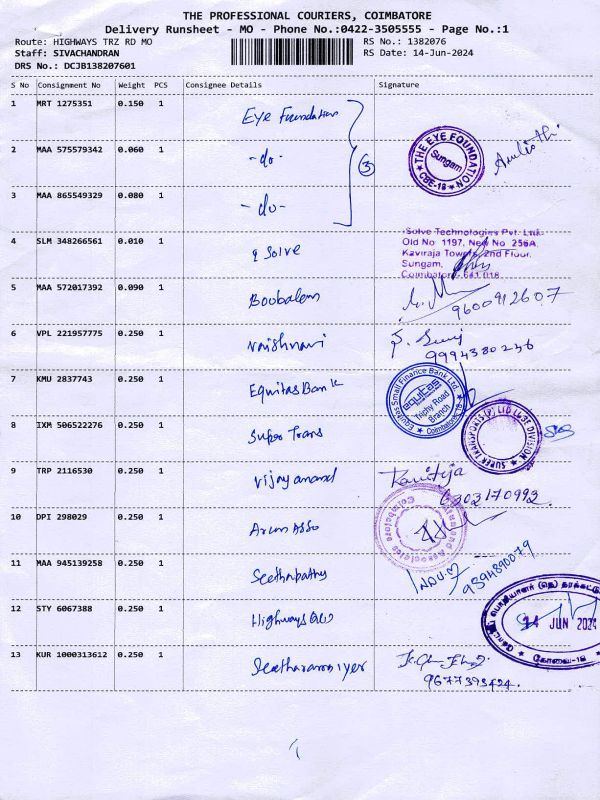 THE PROFESSIONAL COURIERS, COIMBATORE
Delivery Runsheet - MO - Phone No.:0422-3505555 - Page No.:1
Route: HIGHWAYS TRZ RD MO
RS No.: 1382076
Staff: SIVACHANDRAN
RS Date: 14-Jun-2024
DRS No.: DCJB138207601
S No Consignment No Weight PCS Consignee Details Signature
1 MRT 1275351 0.150 1 Eye Foundation
2 MAA 575579342 0.060 1 -do-
3
THE EYE FOUNDATION
Sungam
CBE-18
3 MAA 865549329 0.080 1 -do-
4 SLM 348266561 0.010 1 i Solve
iSolve Technologies Pvt. Ltd.
Old No 1197, New No 256A,
Kaviraja Towers, 2nd Floor,
Sungam,
Coimbatore 641 018
5 MAA 572017392 0.090 1 Boobalem
9600912607
6 VPL 221957775 0.250 1 vaishnavi
9994380246
7 KMU 2837743 0.250 1 Equitas Bank
Equitas Small Finance Bank Ltd.
equitas
Trichy Road
Branch
Coimbatore-18
8 IXM 506522276 0.250 1 Super Trans
SUPER TRANSPORTS (P) LTD DIVISION
9 TRP 2116530 0.250 1 vijay anand
6302170992.
10 DPI 298029 0.250 1 Arun Asso
11 MAA 945139258 0.250 1 Seethapathy
INDU.M
9394890079
12 STY 6067388 0.250 1 Highways
14 JUN 2024
கோவை-18
13 KUR 1000313612 0.250 1 Seetharaman iyer
9677393424.